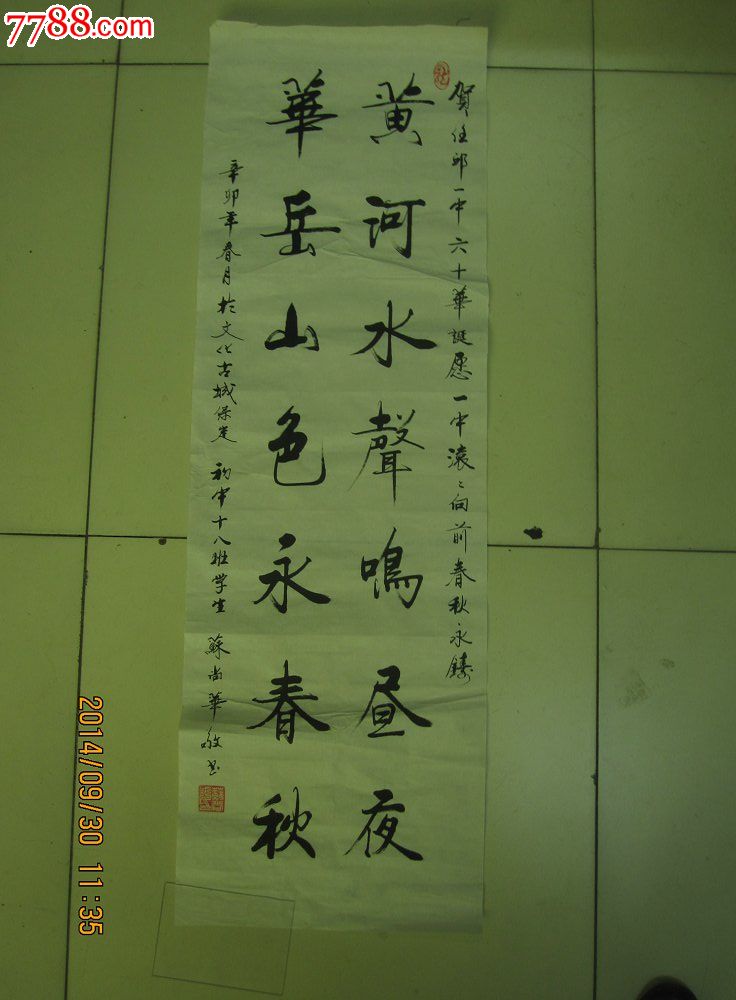 7788.com
贺任邱一中六十華誕愿一中滚滚向前春秋永鑄
黄河水聲鳴昼夜
華岳山色永春秋
辛卯年春月於文化古城保定 初中十八班学生 蘇尚華敬书
2014/09/30 11:35